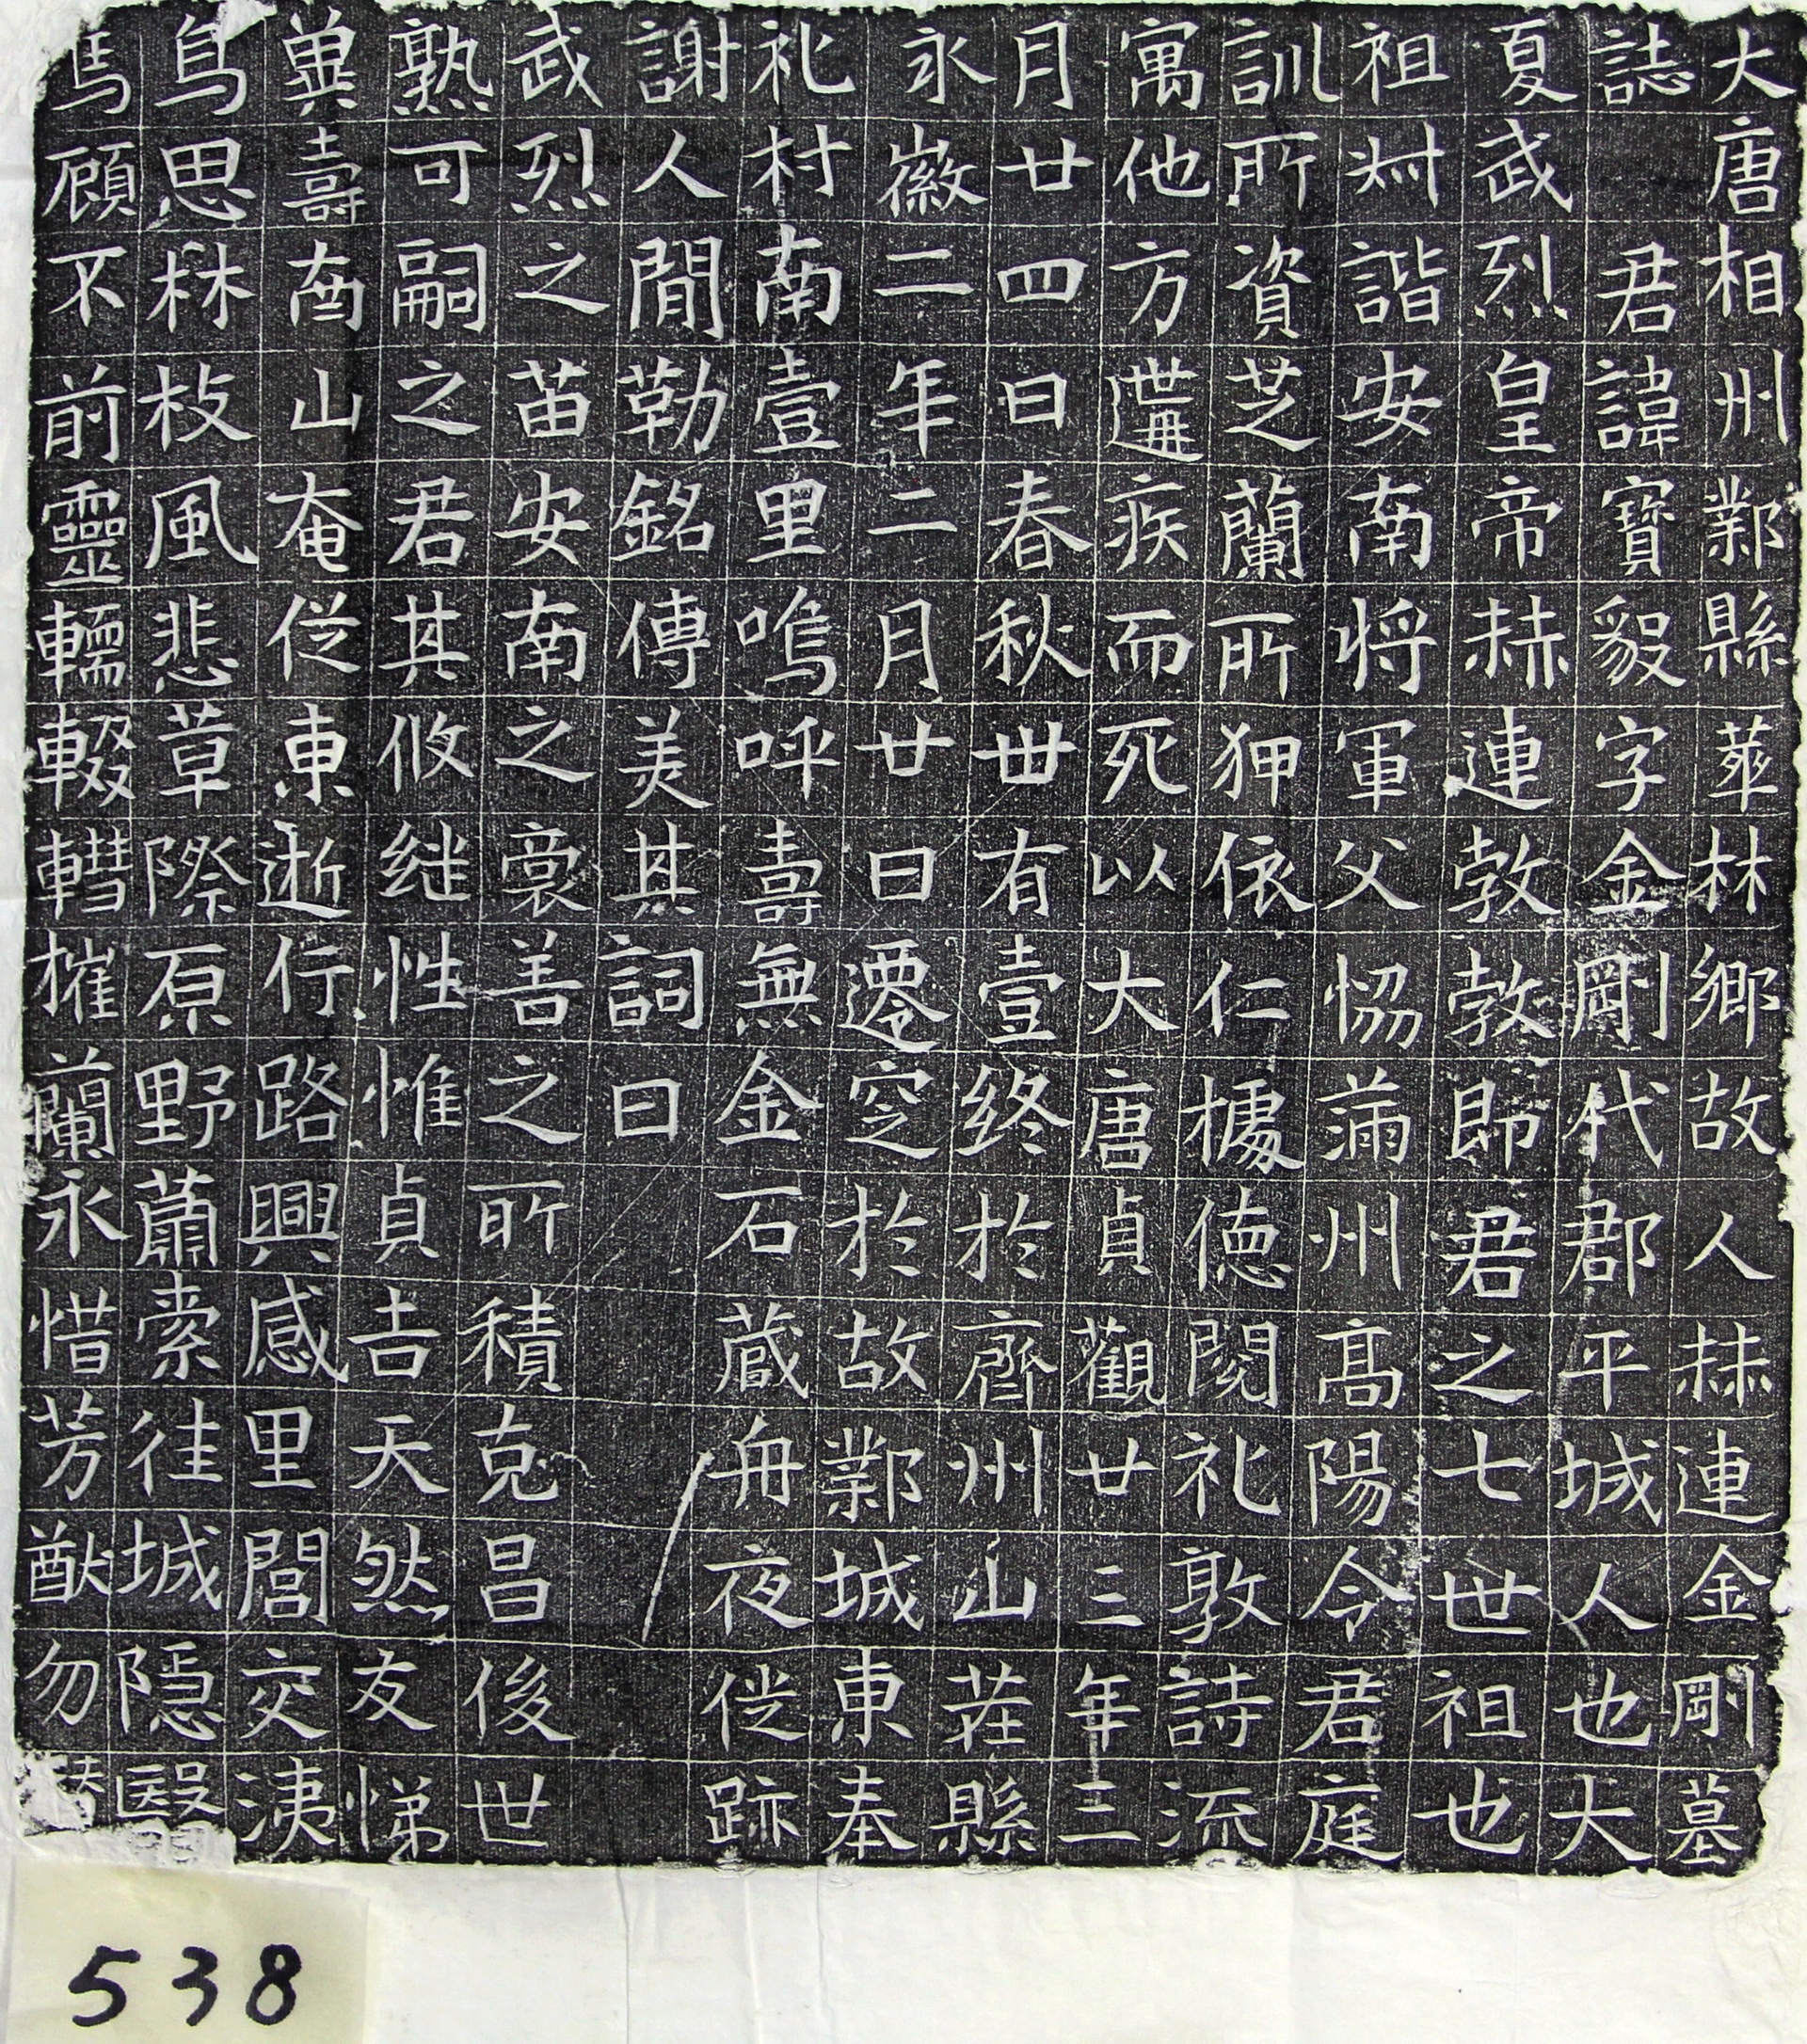 大唐相州鄴縣華林鄉故人赫連金剛墓
誌　君諱寶毅字金剛代郡平城人也大
夏武烈皇帝赫連㪍㪍即君之七世祖也
祖叔諧安南将軍父恊滿州髙陽令君庭
訓所資芝蘭所狎依仁據德閱礼敦詩流
寓他方遘疾而死以大唐貞觀廿三年三
月廿四日春秋卌有壹終於齊州山茌縣
永徽二年二月廿日遷窆於故鄴城東奉
礼村南壹里嗚呼壽無金石蔵舟夜從跡
謝人間勒銘傳美其詞曰
武烈之苗安南之裔善之所積克昌後世
熟可嗣之君其攸継性惟貞吉天然友悌
冀壽南山奄從東逝行路興感里閭交洟
鳥思林枝風悲草際原野蕭索佳城隱翳
馬顧不前靈輀輟轊摧蘭永惜芳猷勿替
538